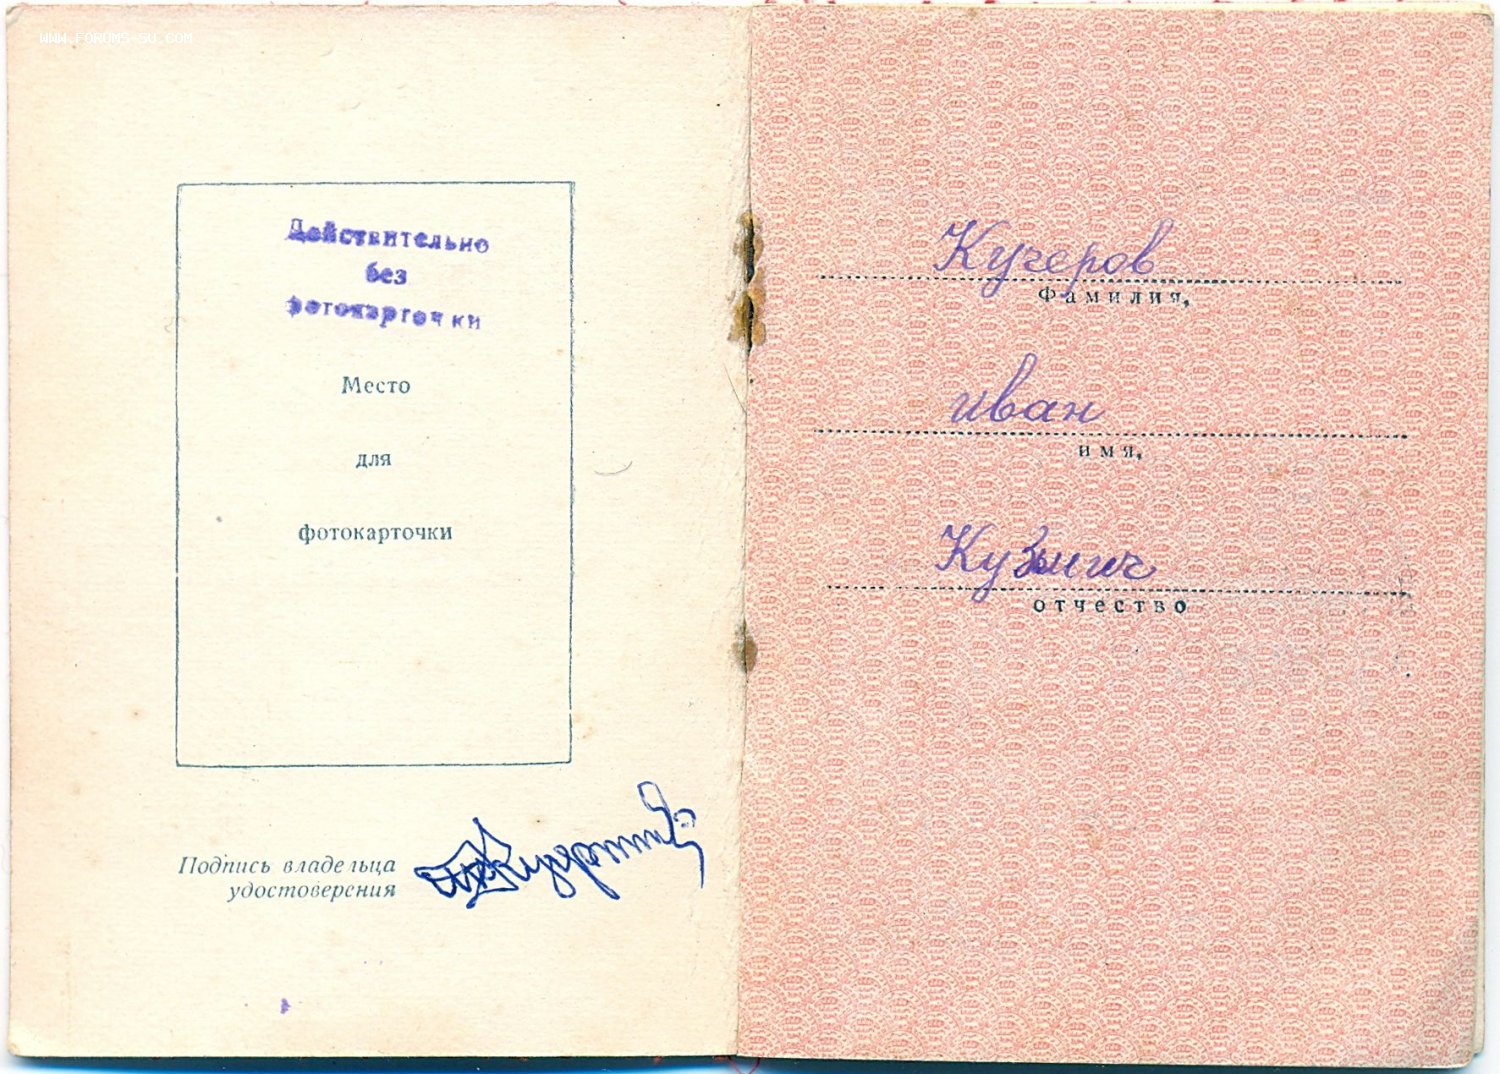 WWW.FORUMS-SU.COM
Действительно
без
фотокарточки
Место
для
фотокарточки
Подпись владельца
удостоверения
Кучеров
Фамилия,
иван
имя,
Кузмич
отчество